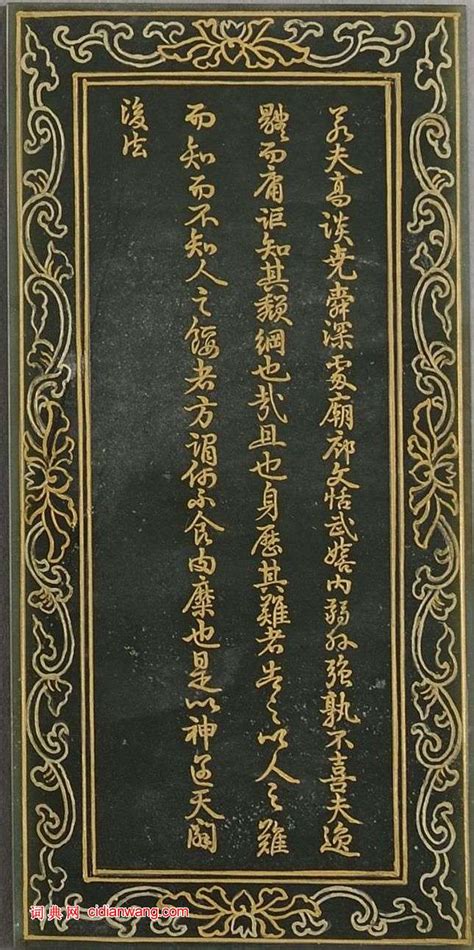 若夫高談堯舜深處廟廊文恬武嬉内弱外強孰不喜夫逸
體而庸詎知其頹綱也哉且也身歷其難者告之以人之難
而知而不知人之餒者方謂何不食肉糜也是以神天
法
词典网 cidianwang.com